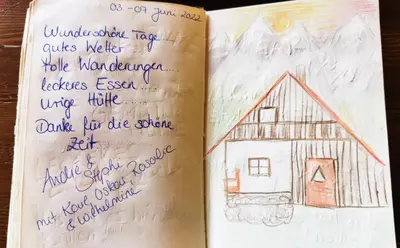 03 - 09 Juni 2022
Wunderschöne Tage
gutes Wetter
tolle Wanderungen....
leckeres Essen....
urige Hütte....
Danke für die schöne
Zeit
André &
Stephi
mit Karl, Oskar, Rosalie
& Wilhelmine